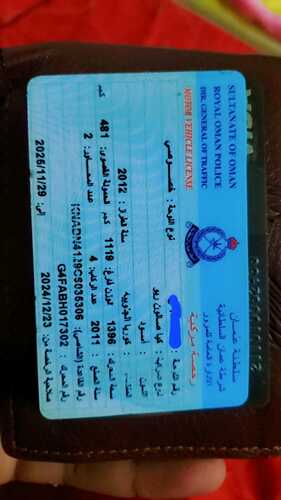 SULTANATE OF OMAN
ROYAL OMAN POLICE
DIR. GENERAL OF TRAFFIC
MOTOR VEHICLE LICENSE
سلطنة عمان
شرطة عمان السلطانية
الإدارة العامة للمرور
رخصة مركبة
رقم اللوحة :
نوع اللوحة : خصوصي
نوع المركبة : كيا
اللون : أسود
كوريا الجنوبية
سنة الطراز : 2012
سعة المحرك : 1396
الوزن فارغ : 1119 كجم
الحمولة القصوى : 481 كجم
سنة الصنع : 2011
عدد الركاب : 4
عدد المحاور : 2
رقم القاعدة (الشاصي) : KNADN4129CS035306
رقم المحرك : G4FABH017302
صلاحية الرخصة من : 2024/12/23
إلى : 2026/11/29